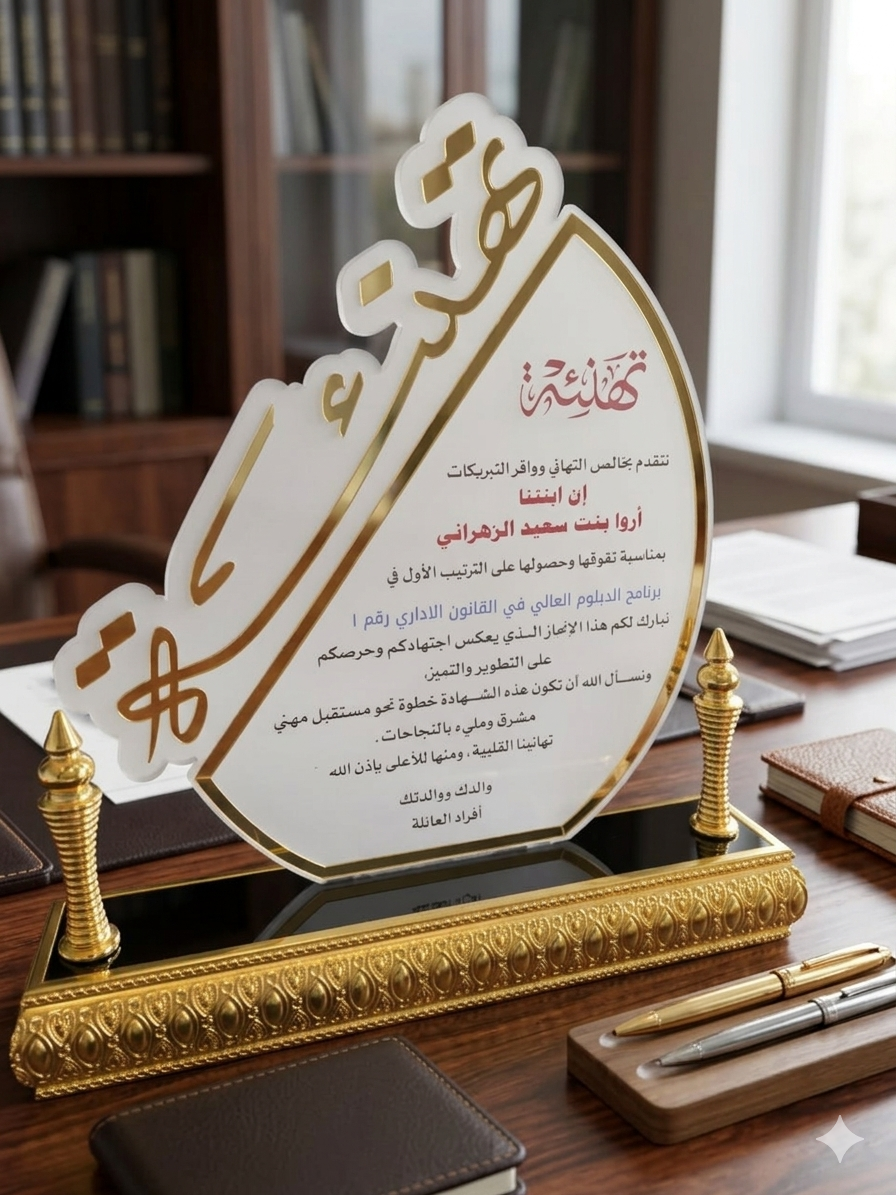 تهنئة
تهنئة
نتقدم بخالص التهاني ووافر التبريكات
إن ابنتنا
أروا بنت سعيد الزهراني
بمناسبة تفوقها وحصولها على الترتيب الأول في
برنامج الدبلوم العالي في القانون الاداري رقم ١
نبارك لكم هذا الإنجاز الذي يعكس اجتهادكم وحرصكم
على التطوير والتميز،
ونسأل الله أن تكون هذه الشهادة خطوة نحو مستقبل مهني
مشرق ومليء بالنجاحات.
تهانينا القلبية، ومنها للأعلى بإذن الله
والدك ووالدتك
أفراد العائلة